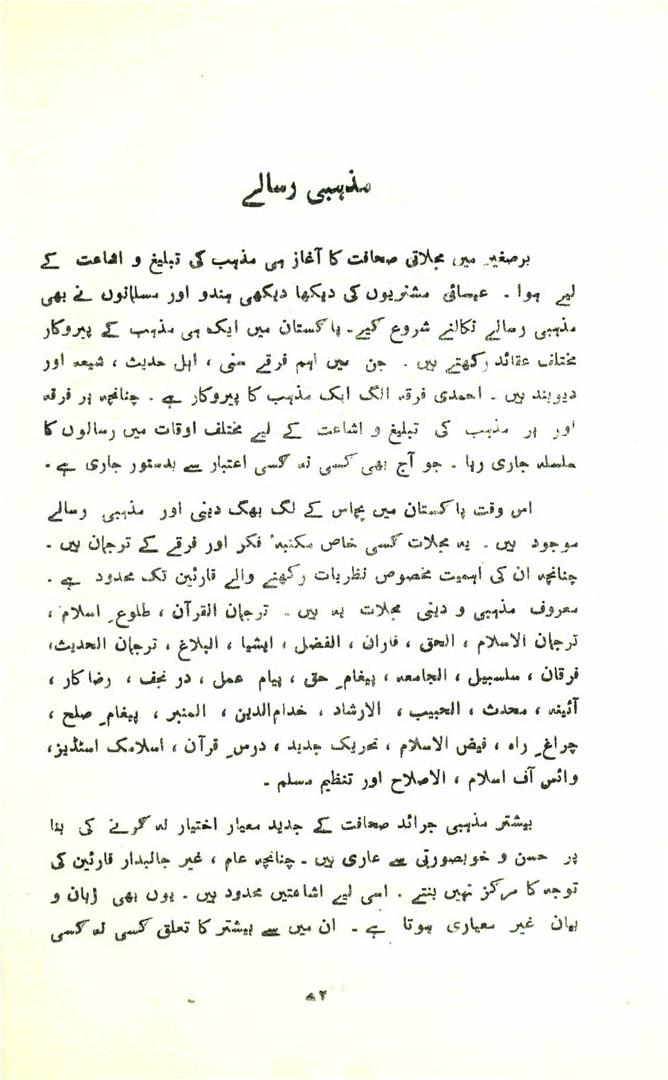 مذہبی رسالے
برصغیر میں مجلاتی صحافت کا آغاز ہی مذہب کی تبلیغ و اشاعت کے
لیے ہوا ۔ عیسائی مشنریوں کی دیکھا دیکھی ہندو اور مسلمانوں نے بھی
مذہبی رسالے نکالنے شروع کیے۔ پاکستان میں ایک ہی مذہب کے پیروکار
مختلف عقائد رکھتے ہیں ۔ جن میں اہم فرقے سنی ، اہل حدیث ، شیعہ اور
دیوبند ہیں ۔ احمدی فرقہ الگ ایک مذہب کا پیروکار ہے ۔ چنانچہ ہر فرقہ
اور ہر مذہب کی تبلیغ و اشاعت کے لیے مختلف اوقات میں رسالوں کا
سلسلہ جاری رہا ۔ جو آج بھی کسی نہ کسی اعتبار سے بدستور جاری ہے ۔
اس وقت پاکستان میں پچاس کے لگ بھگ دینی اور مذہبی رسالے
موجود ہیں ۔ یہ مجلات کسی خاص مکتبہٴ فکر اور فرقے کے ترجمان ہیں ۔
چنانچہ ان کی اہمیت مخصوص نظریات رکھنے والے قارئین تک محدود ہے ۔
معروف مذہبی و دینی مجلات یہ ہیں ۔ ترجمان القرآن ، طلوعِ اسلام ،
ترجمان الاسلام ، الحق ، فاران ، الفضل ، ایشیا ، البلاغ ، ترجمان الحدیث،
فرقان ، سلسبیل ، الجامعہ ، پیغامِ حق ، پیام عمل ، در نجف ، رضاکار ،
آئینہ ، محدث ، الحبیب ، الارشاد ، خدام‌الدین ، المنبر ، پیغامِ صلح ،
چراغِ راہ ، فیض الاسلام ، تحریک جدید ، درسِ قرآن ، اسلامک اسٹڈیز،
وائس آف اسلام ، الاصلاح اور تنظیم مسلم ۔
بیشتر مذہبی جرائد صحافت کے جدید معیار اختیار نہ کرنے کی بنا
پر حسن و خوبصورتی سے عاری ہیں ۔ چنانچہ عام ، غیر جانبدار قارئین کی
توجہ کا مرکز نہیں بنتے ۔ اسی لیے اشاعتیں محدود ہیں ۔ یوں بھی زبان و
بیان غیر معیاری ہوتا ہے ۔ ان میں سے بیشتر کا تعلق کسی نہ کسی
۷۲